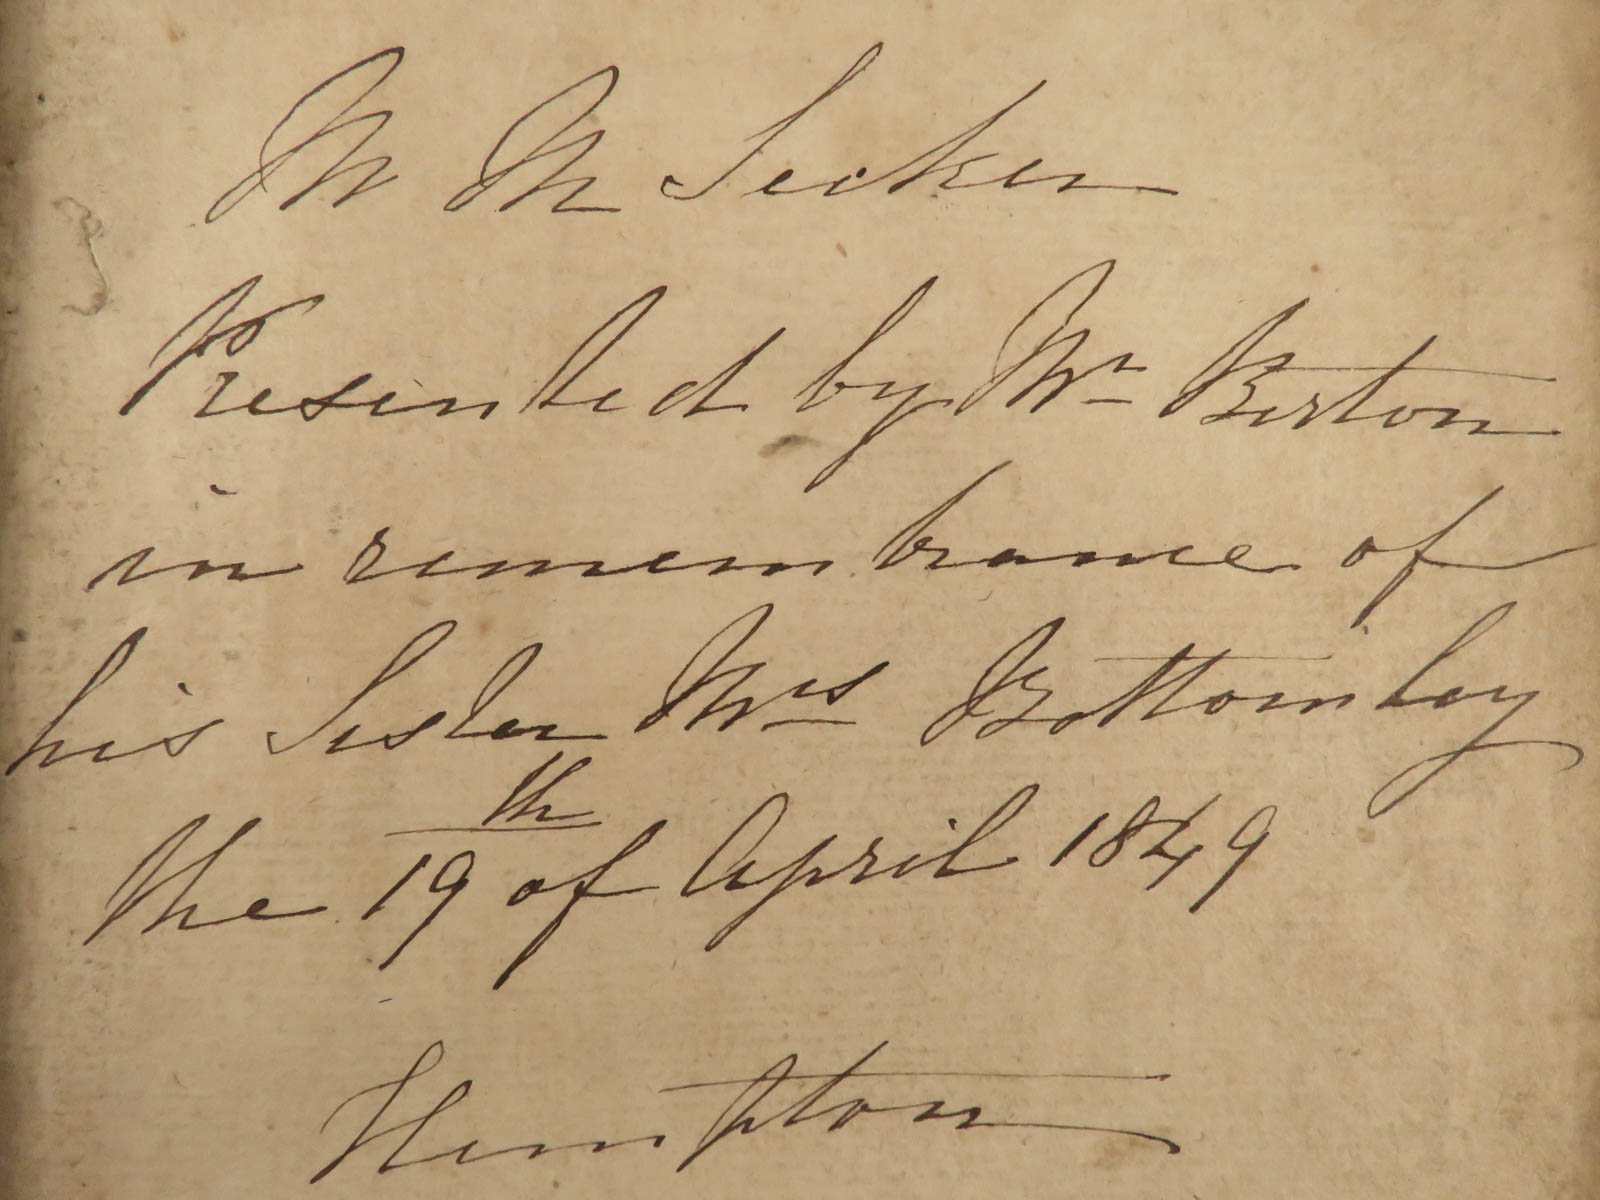 M M Secker
Presented by Mr Burton
in remembrance of
his Sister Mrs Bottomley
the 19th of April 1849
Hampton